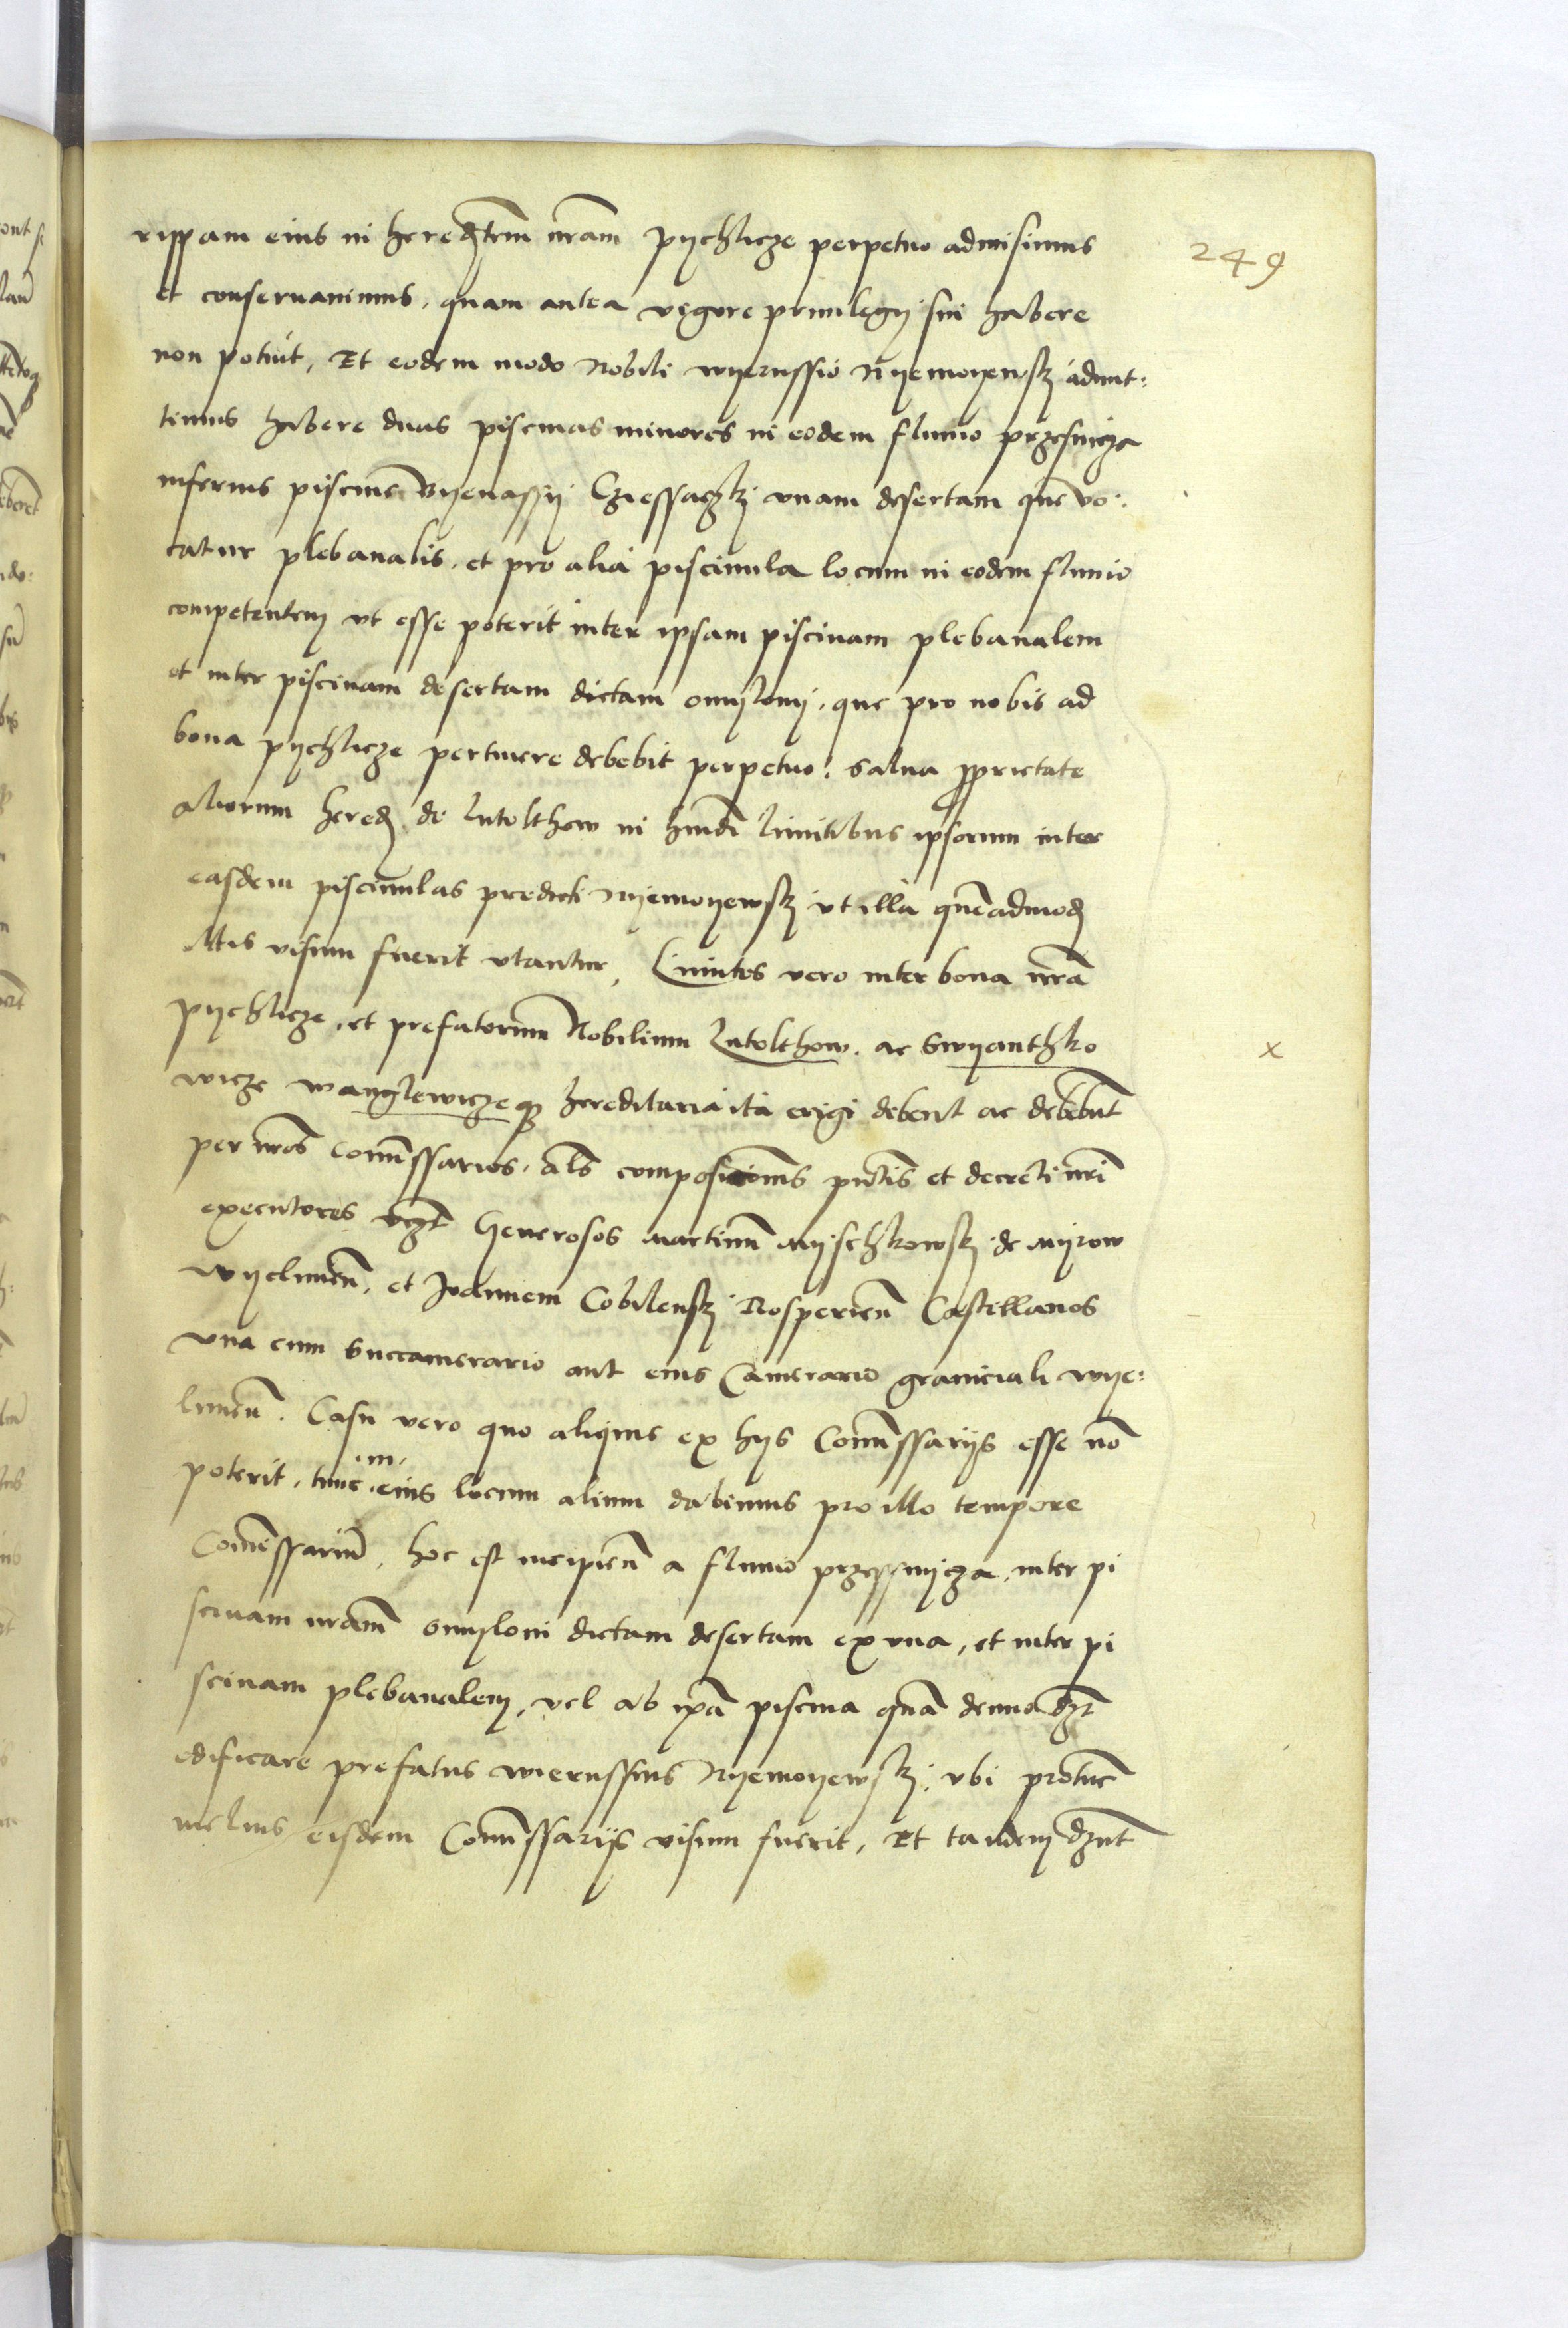 249
rippam eius in heredtem nram pychlicze perpetuo admisimus
et conservavimus, quam antea vigore privilegij sui habere
non potuit, Et eodem modo Nobili wyerussio Nyemoyewskj admit:
timus habere duas piscinas minores in eodem fluvio przesnicza
inferius piscine Byenassij Cziessaczkj unam desertam que vo:
catur plebanalis, et pro alia piscinula locum in eodem fluvio
competentem ut esse poterit inter ipsam piscinam plebanalem
et inter piscinam desertam dictam omylonij, que pro nobis ad
bona pychlicze pertinere debebit perpetuo: salva proprietate
aliorum hered de lutolthow in hmdi limitibus ipsorum inter
easdem piscinulas predicti Nyemoyewskj ut illa quemadmod
illis visum fuerit utantur, Limites vero inter bona nra
pychlicze, et prefatorum Nobilium Lutolthow, ac Swyanthko
wicze wanglewicze q hereditaria ita erigi debent ac debebunt
per nros comissarios, als compositionis pntis et decreti nri
executores vczt Generosos martinum myschkowskj de myrow
wyelunen, et Joannem Cobilenskj Rosperien Castellanos
una cum Succamerario aut eius Camerario graniciali wye:
lunen. Casu vero quo aliquis ex hijs Comissarijs esse no
poterit, tunc in eius locum alium dabimus pro illo tempore
Comissariu, hoc est incipien a fluvio przessnycza, inter pi
scinam nram omyloni dictam desertam ex una, et inter pi
scinam plebanalem, vel ab ipa piscina qua denuo dzt
edificare prefatus wierussius Nyemoyewskj, ubi protunc
melius eisdem Comissarijs visum fuerit, Et tandem dznt
x